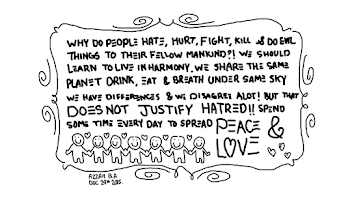 WHY DO PEOPLE HATE, HURT, FIGHT, KILL & DO EVIL
THINGS TO THEIR FELLOW MANKIND?! WE SHOULD
LEARN TO LIVE IN HARMONY. WE SHARE THE SAME
PLANET DRINK, EAT & BREATH UNDER SAME SKY
WE HAVE DIFFERENCES & WE DISAGREE ALOT! BUT THAT
DOES NOT JUSTIFY HATRED!! SPEND
SOME TIME EVERY DAY TO SPREAD PEACE &
LOVE
AZZAH B.A
DEC 29th 2015.